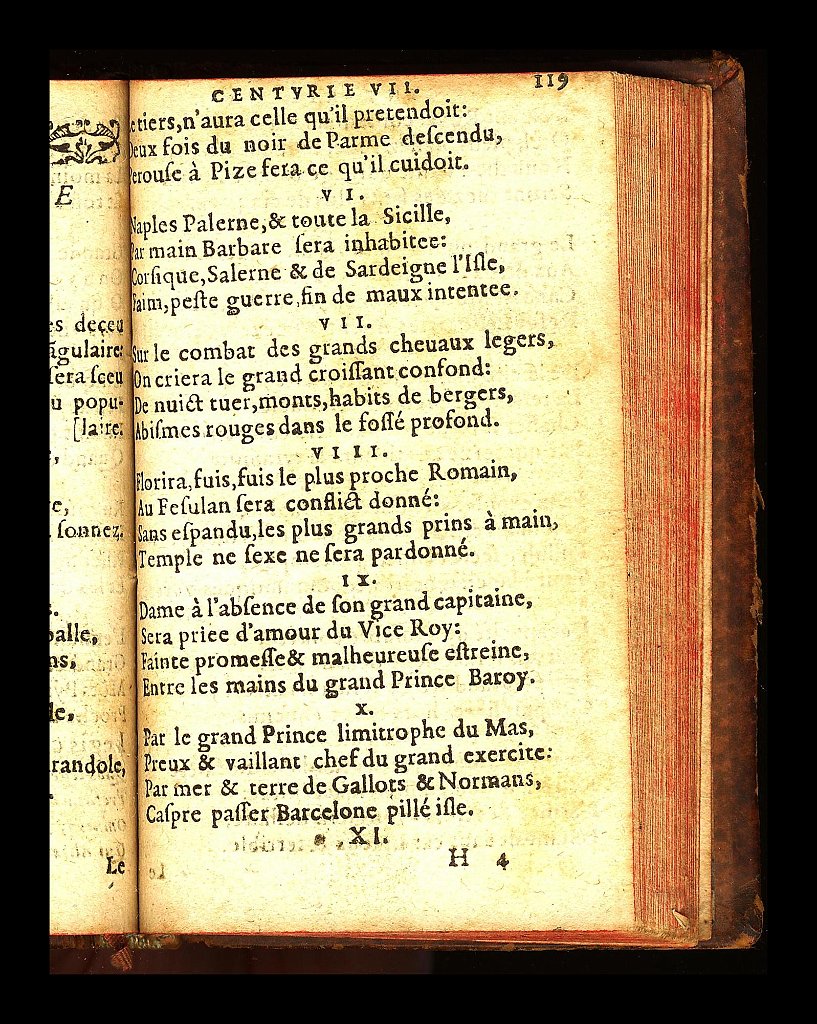 E
es deçeu
ãgulaire:
sera sceu
u popu-
[laire.
e,
sonnez.
balle,
ns,
le,
randole,
Le
CENTVRIE VII. 119
Le tiers,n'aura celle qu'il pretendoit:
Deux fois du noir de Parme descendu,
Perouse à Pize fera ce qu'il cuidoit.
VI.
Naples Palerne,& toute la Sicille,
Par main Barbare sera inhabitee:
Corsique,Salerne & de Sardeigne l'Isle,
Faim,peste guerre,fin de maux intentee.
VII.
Sur le combat des grands cheuaux legers,
On criera le grand croissant confond:
De nuict tuer,monts,habits de bergers,
Abismes rouges dans le fossé profond.
VIII.
Florira,fuis,fuis le plus proche Romain,
Au Fesulan sera conflict donné:
Sans espandu,les plus grands prins à main,
Temple ne sexe ne sera pardonné.
IX.
Dame à l'absence de son grand capitaine,
Sera priee d'amour du Vice Roy:
Fainte promesse & malheureuse estreine,
Entre les mains du grand Prince Baroy.
X.
Par le grand Prince limitrophe du Mas,
Preux & vaillant chef du grand exercite:
Par mer & terre de Gallots & Normans,
Caspre passer Barcelone pillé isle.
XI.
H 4